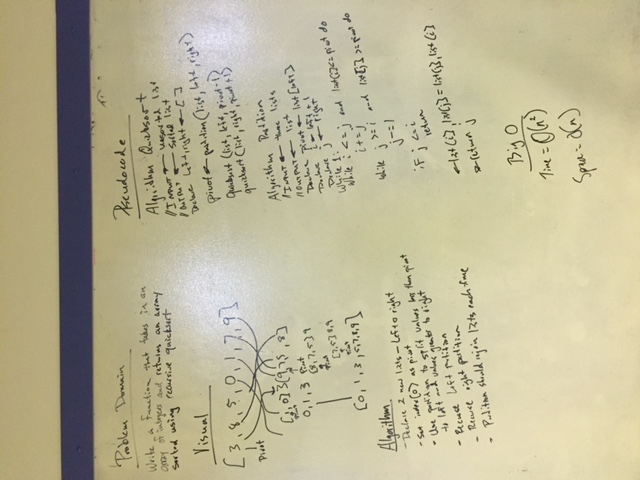 Problem Domain
Write a function that takes in an
array of integers and returns an array
sorted using recursive quicksort
Visual
[3, 8, 5, 0, 1, 7, 9]
Pivot
[1, 0] 3 [9, 7, 5, 8]
Pivot
0, 1, 3
Pivot
[8, 7, 5] 9
Pivot
[7, 5] 8, 9
[0, 1, 3, 5, 7, 8, 9]
Algorithm
- Declare 2 new lists - left & right
- Set index[0] as pivot
- Use partition to split values less than pivot
to left and values greater to right
- Recurse left partition
- Recurse right partition
- Partition should rejoin lists each time
Pseudocode
Algorithm Quicksort
//INPUT ← unsorted list
//OUTPUT ← sorted list
Declare left, right ← []
pivot ← partition (list, left, right)
Quicksort (list, left, pivot-1)
quicksort (list, right, pivot+1)
Algorithm Partition
//INPUT ← three lists
//OUTPUT ← list
Declare pivot ← list[left]
Declare i ← left + 1
Declare j ← right
While 1:
While i <= j and list[i] <= pivot do
i += j
while j >= i and list[j] >= pivot do
j -= 1
if j <= i
return
list[i], list[j] = list[j], list[i]
return j
Big O
Time = O(n²)
Space = O(n)